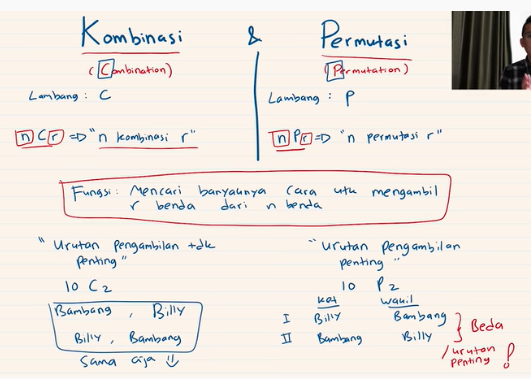 Kombinasi & Permutasi
(Combination) (Permutation)
Lambang : C Lambang : P
n C r => "n kombinasi r" n P r => "n permutasi r"
Fungsi : Mencari banyaknya cara utk mengambil
r benda dari n benda
"Urutan pengambilan tdk
penting"
10 C 2
Bambang , Billy
Billy , Bambang
Sama aja
"Urutan pengambilan
penting"
10 P 2
ket wakil
I Billy Bambang
II Bambang Billy
Beda
/urutan
penting !